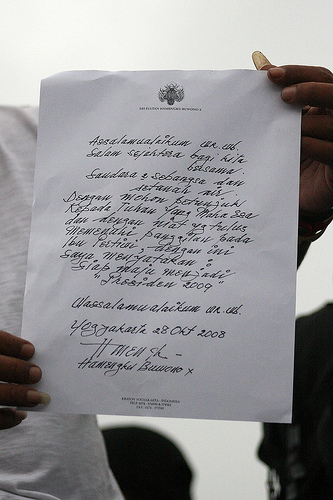 SRI SULTAN HAMENGKU BUWONO X
Assalamualaikum wr. wb.
Salam sejahtera bagi kita
bersama.
Saudara 2 sebangsa dan
setanah air.
Dengan mohon petunjuk
Kepada Tuhan Yang Maha Esa
dan dengan niat yg tulus
Memenuhi panggilan pada
Ibu Pertiwi, dengan ini
Saya menyatakan :
"Siap maju menjadi
"Presiden 2009"
Wassalamualaikum wr. wb.
Yogyakarta 28 Okt 2008
Hamengku Buwono X
KRATON YOGYAKARTA - INDONESIA